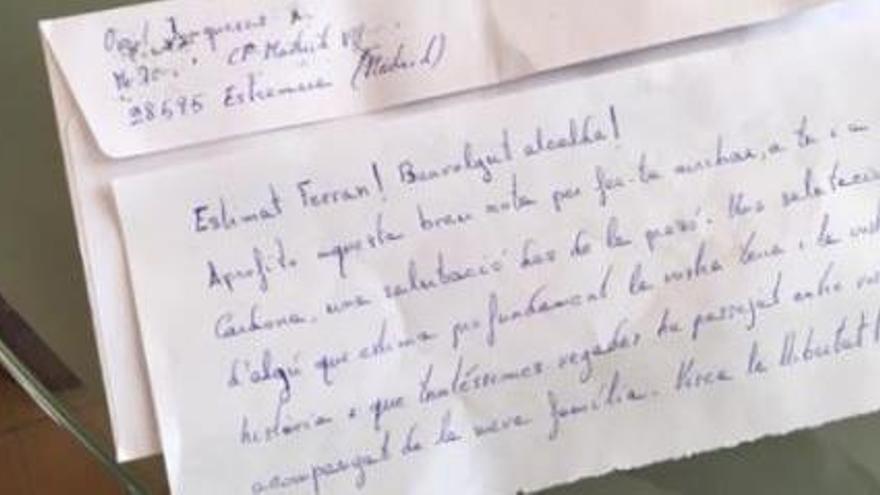 Oriol Junqueras
CP Madrid VII
28595 Estremera (Madrid)
Estimat Ferran! Benvolgut alcalde!
Aprofito aquesta breu nota per fer-te arribar, a tu i a
Cardona, una salutació des de la presó. Una salutació
d'algú que estima profundament la vostra terra i la
història i que tantíssimes vegades ha passejat entre
acompanyat de la meva família. Visca la llibertat!